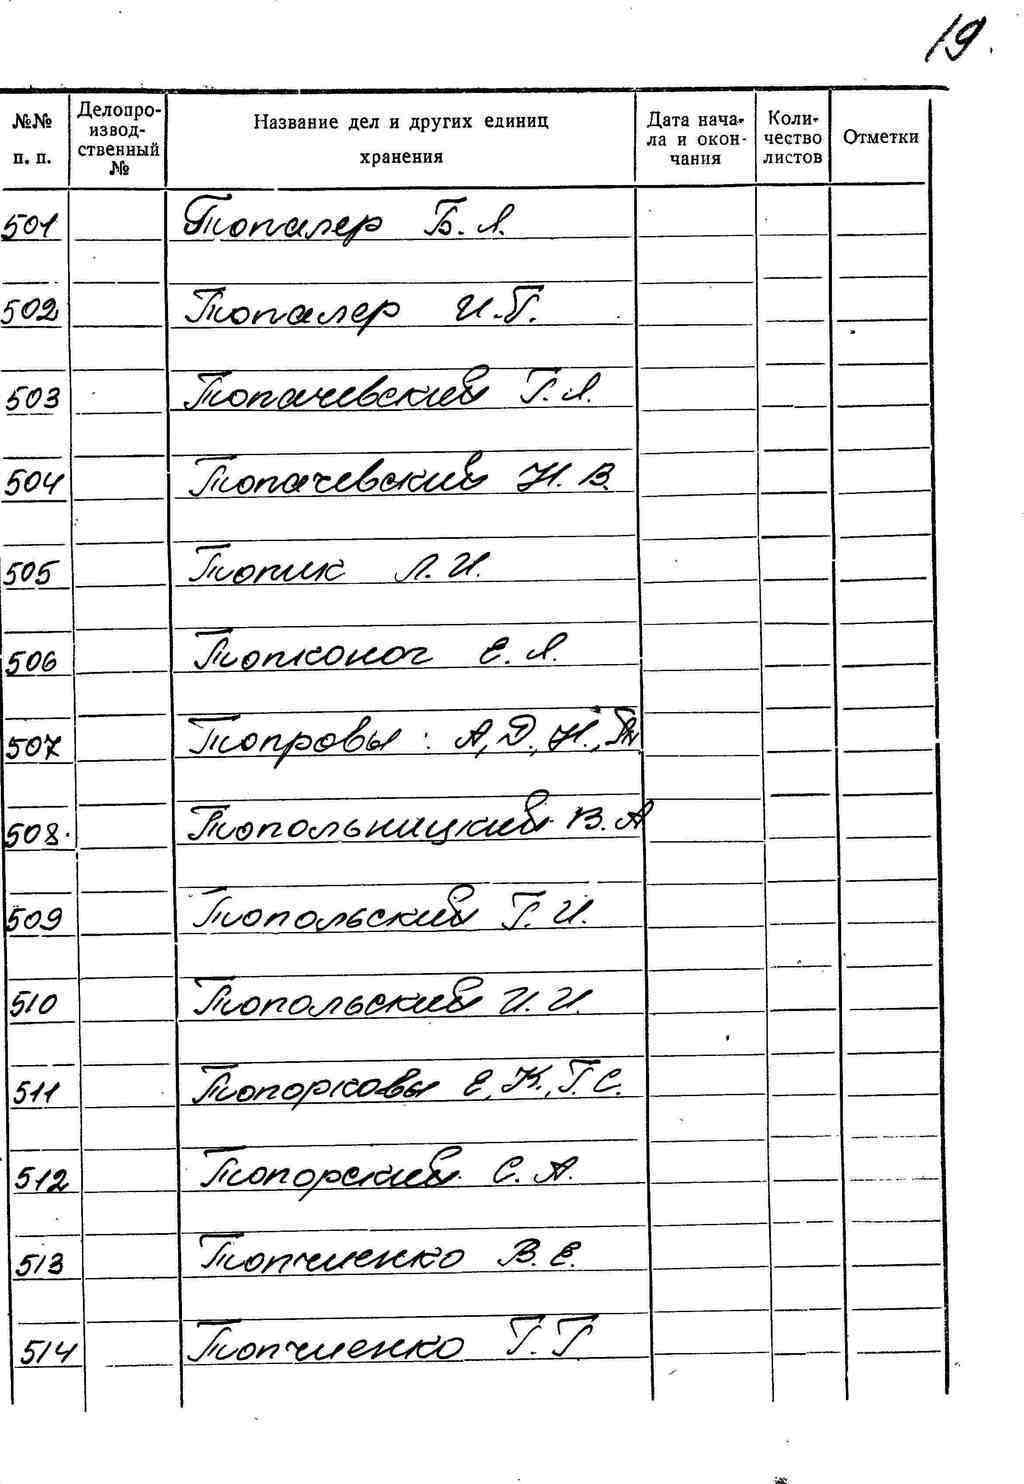 19.
№№ п. п.
Делопроизводственный №
Название дел и других единиц хранения
Дата начала и окончания
Количество листов
Отметки
501 Топалер Б. Я.
502 Топалер И. Г.
503 Топачевский Г. Я.
504 Топачевский Н. В.
505 Топик Л. И.
506 Топконог Е. Я.
507 Топровы: А, Д, Н.,
508. Топольницкий В. А
509 Топольский Г. И.
510 Топольский И. И.
511 Топорковы Е, К, Г. С.
512 Топорский С. А.
513 Топчиенко В. Е.
514 Топчиенко Г. Г